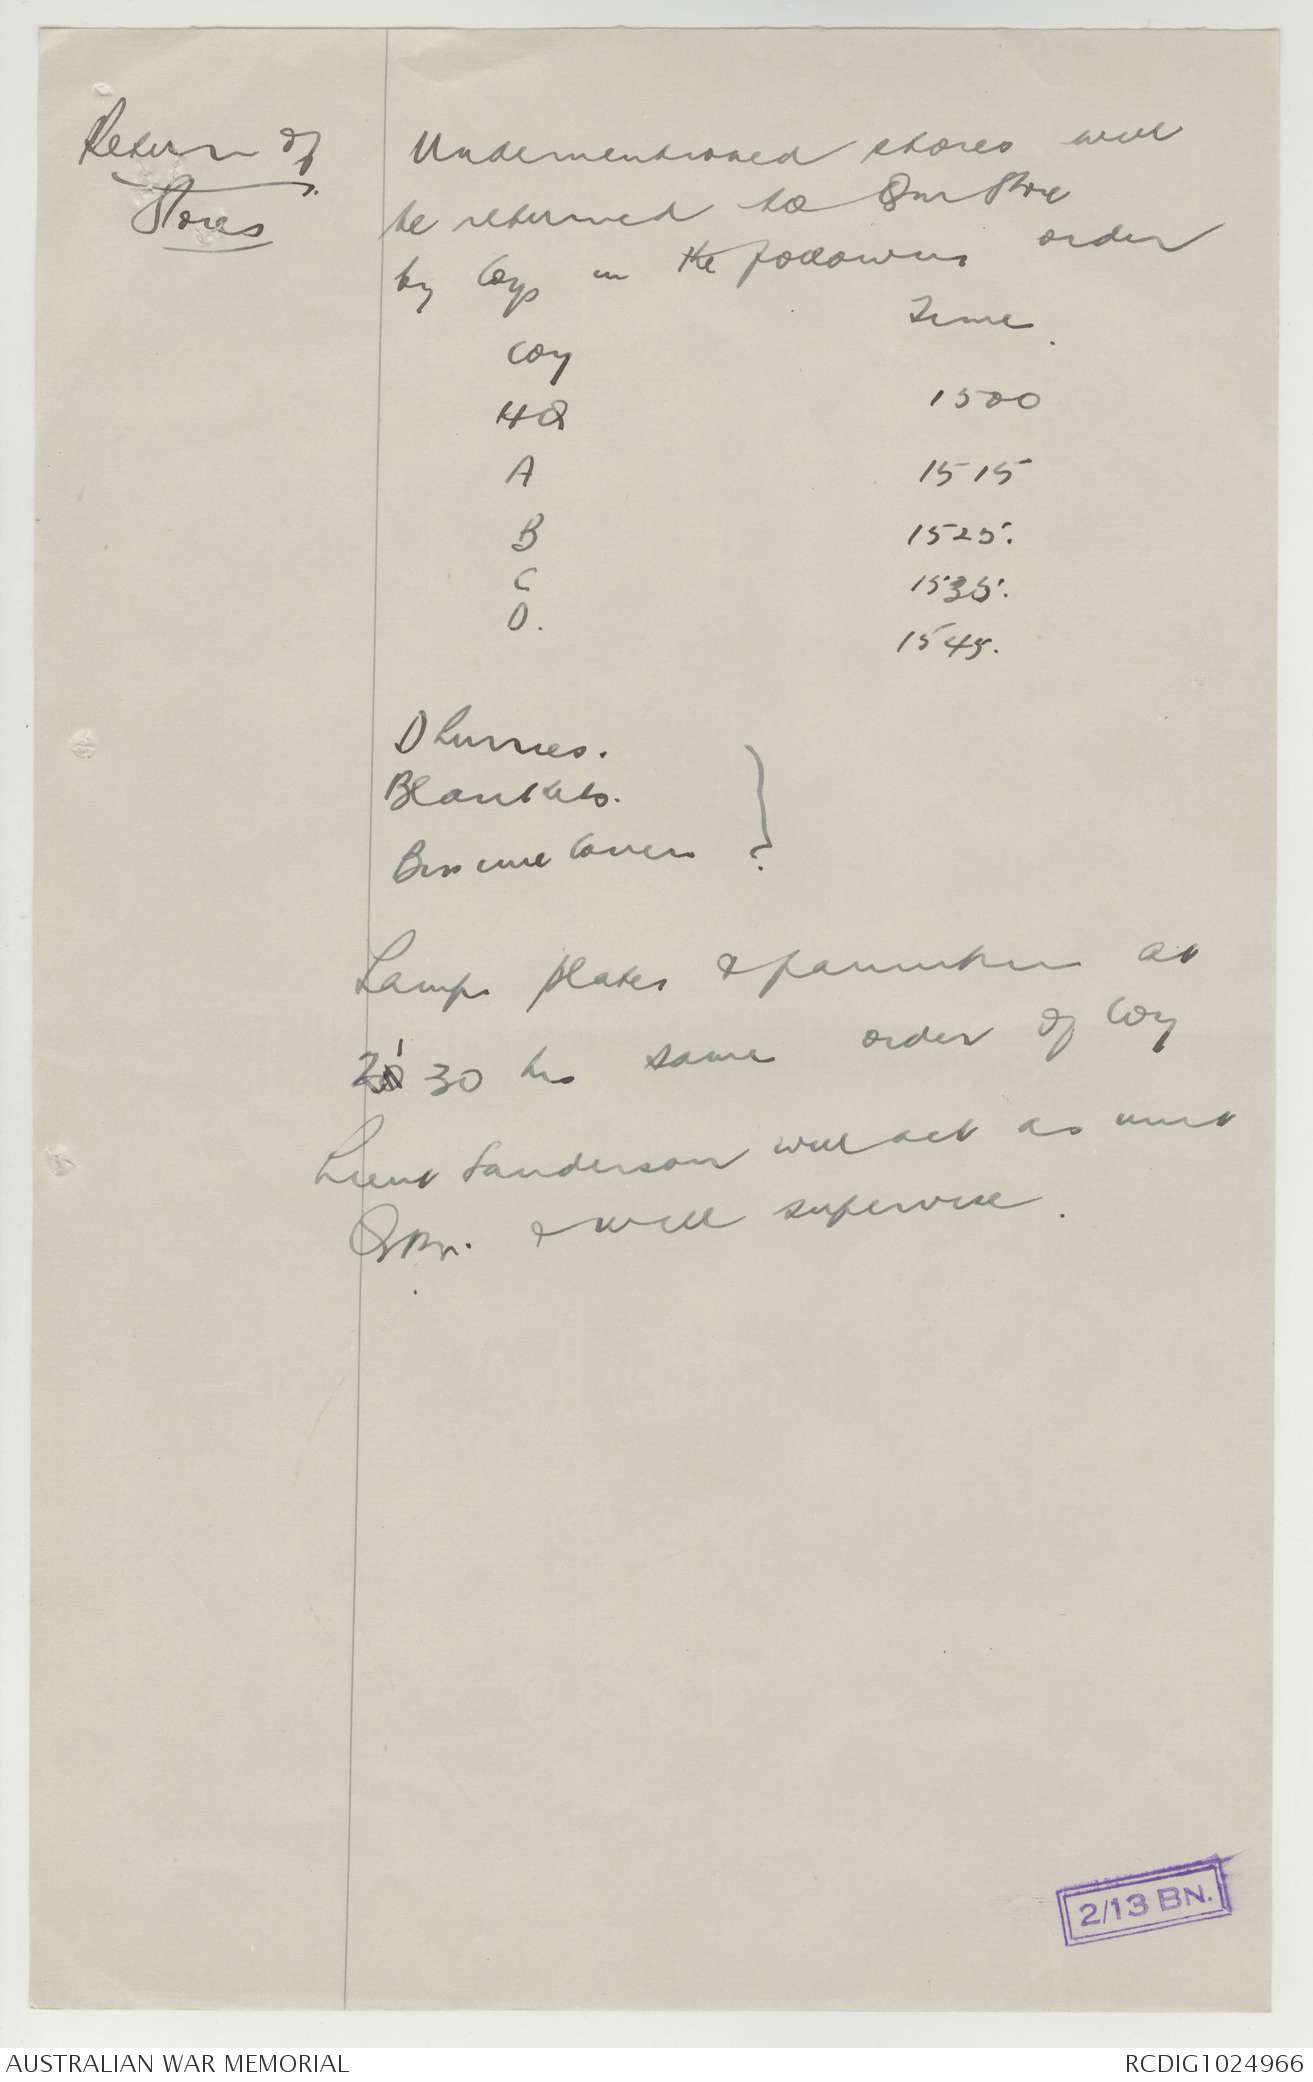 Return of
Stores
Undermentioned stores will
be returned to Qm Store
by Coys in the following order
Time
Coy
HQ 1500
A 1515
B 1525.
C 1535.
D. 1545.
Dhurries.
Blankets.
Covers
Lamps plates & at
2130 hrs same order of Coy
Lieut Sanderson will act as unit
QM. & will supervise.
2/13 BN.
AUSTRALIAN WAR MEMORIAL
RCDIG1024966